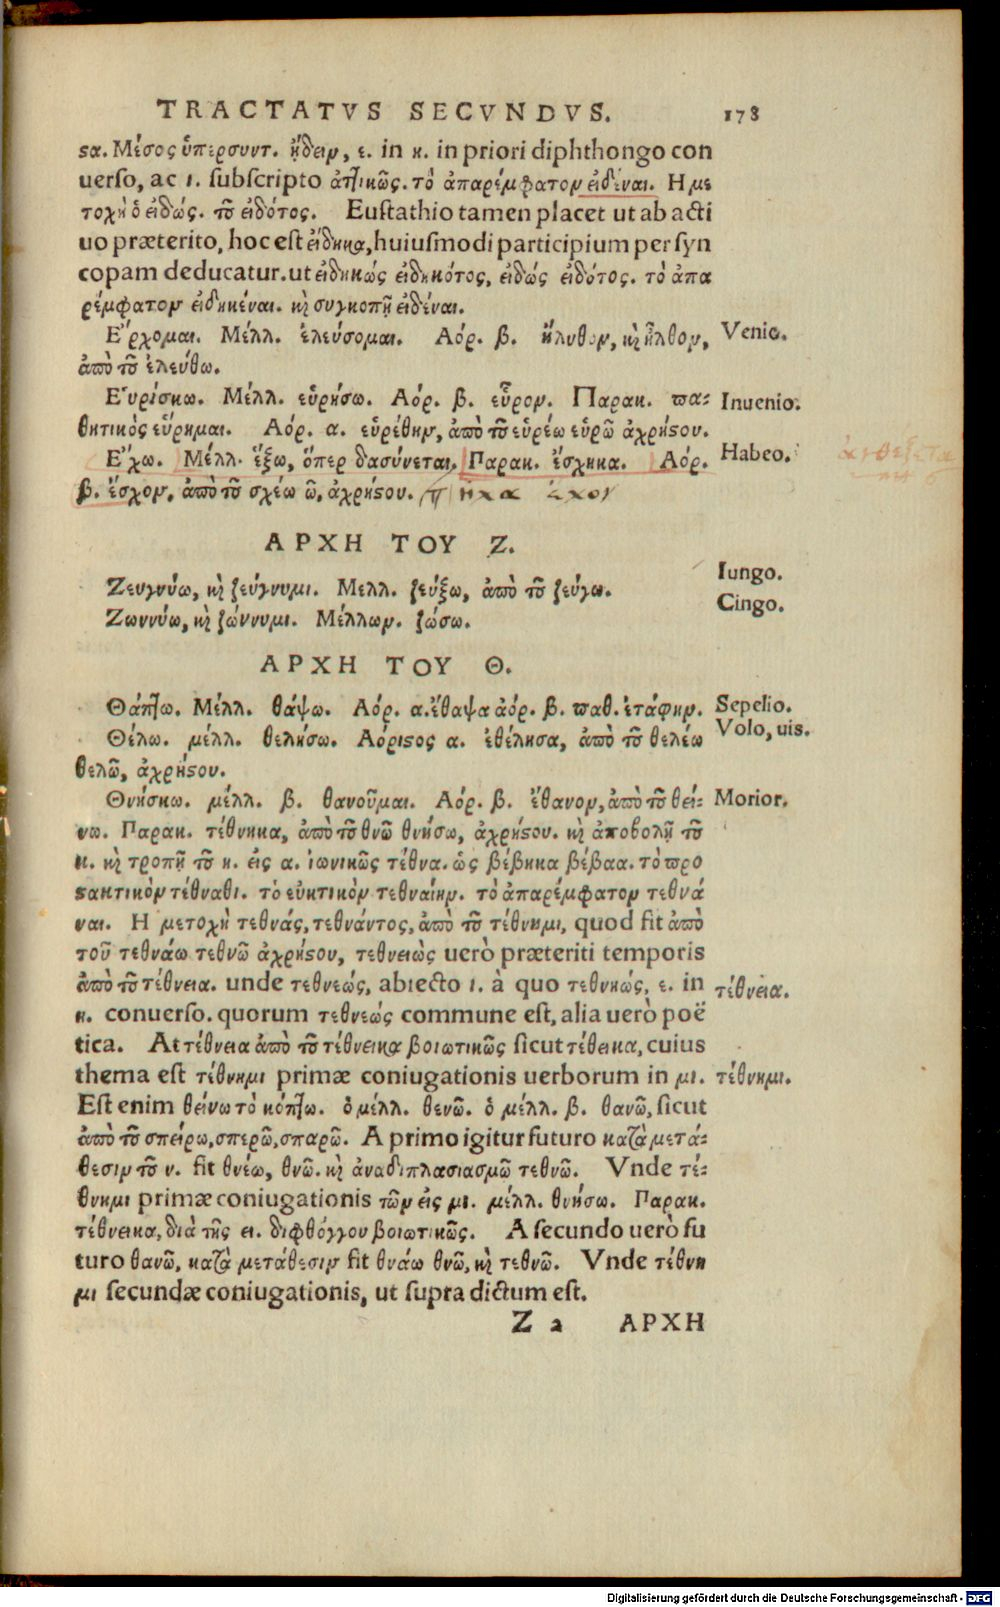 TRACTATVS SECVNDVS. 178
σα. Μέσος ὑπερσυντ. ᾔδειν, ε. in η. in priori diphthongo con
uerso, ac ι. subscripto ἀττικῶς. τὸ ἀπαρέμφατον εἰδέναι. Η με
τοχὴ ὁ εἰδώς. τοῦ εἰδότος. Eustathio tamen placet ut ab acti
uo præterito, hoc est εἴδηκα, huiusmodi participium per syn
copam deducatur. ut εἰδηκώς εἰδηκότος, εἰδώς εἰδότος. τὸ ἀπα
ρέμφατον εἰδηκέναι. καὶ συγκοπῇ εἰδέναι.
Ε῎ρχομαι. Μέλλ. ἐλεύσομαι. Αόρ. β. ἤλυθον, καὶ ἦλθον, Venio.
ἀπὸ τοῦ ἐλεύθω.
Ε῾υρίσκω. Μέλλ. εὑρήσω. Αόρ. β. εὗρον. Παρακ. πα-
Inuenio.
θητικὸς εὕρημαι. Αόρ. α. εὑρέθην, ἀπὸ τοῦ εὑρέω εὑρῶ ἀχρήστου.
Ε῎χω. Μέλλ. ἕξω, ὅπερ δασύνεται. Παρακ. ἔσχηκα. Αόρ. Habeo.
β. ἔσχον, ἀπὸ τοῦ σχέω ῶ, ἀχρήστου.
ΑΡΧΗ ΤΟΥ Ζ.
Ζευγνύω, καὶ ζεύγνυμι. Μελλ. ζεύξω, ἀπὸ τοῦ ζεύγω. Iungo.
Ζωννύω, καὶ ζώννυμι. Μέλλων. ζώσω. Cingo.
ΑΡΧΗ ΤΟΥ Θ.
Θάπτω. Μέλλ. θάψω. Αόρ. α. ἔθαψα ἀόρ. β. παθ. ἐτάφην. Sepelio.
Θέλω. μέλλ. θελήσω. Αόριστος α. ἐθέλησα, ἀπὸ τοῦ θελέω Volo, uis.
θελῶ, ἀχρήστου.
Θνήσκω. μέλλ. β. θανοῦμαι. Αόρ. β. ἔθανον, ἀπὸ τοῦ θεί- Morior.
νω. Παρακ. τέθνηκα, ἀπὸ τοῦ θνῶ θνήσω, ἀχρήστου. καὶ ἀποβολῇ τοῦ
κ. καὶ τροπῇ τοῦ η. εἰς α. ἰωνικῶς τέθναα. ὡς βέβηκα βέβαα. τὸ προ
στακτικὸν τέθναθι. τὸ εὐκτικὸν τεθναίην. τὸ ἀπαρέμφατον τεθνά
ναι. Η μετοχὴ τεθνάς, τεθνάντος, ἀπὸ τοῦ τέθνημι, quod fit ἀπὸ
τοῦ τεθνάω τεθνῶ ἀχρήστου, τεθνειὼς uerò præteriti temporis
ἀπὸ τοῦ τέθνεια. unde τεθνεώς, abiecto ι. à quo τεθνηώς, ε. in τέθνεια.
η. conuerso. quorum τεθνεώς commune est, alia uerò poë
tica. At τέθνεια ἀπὸ τοῦ τέθνεικα βοιωτικῶς sicut τέθεικα, cuius
thema est τέθνημι primæ coniugationis uerborum in μι. τέθνημι.
Est enim θείνω τὸ κόπτω. ὁ μέλλ. θενῶ. ὁ μέλλ. β. θανῶ, sicut
ἀπὸ τοῦ σπείρω, σπερῶ, σπαρῶ. A primo igitur futuro κατὰ μετά-
θεσιν τοῦ ν. fit θνέω, θνῶ. καὶ ἀναδιπλασιασμῶ τεθνῶ. Vnde τέ-
θνημι primæ coniugationis τῶν εἰς μι. μέλλ. θνήσω. Παρακ.
τέθνεικα, διὰ τῆς ει. διφθόγγου βοιωτικῶς. A secundo uerò fu
turo θανῶ, κατὰ μετάθεσιν fit θνάω θνῶ, καὶ τεθνῶ. Vnde τέθνη
μι secundæ coniugationis, ut supra dictum est.
Z 2 ΑΡΧΗ
Digitalisierung gefördert durch die Deutsche Forschungsgemeinschaft - DFG